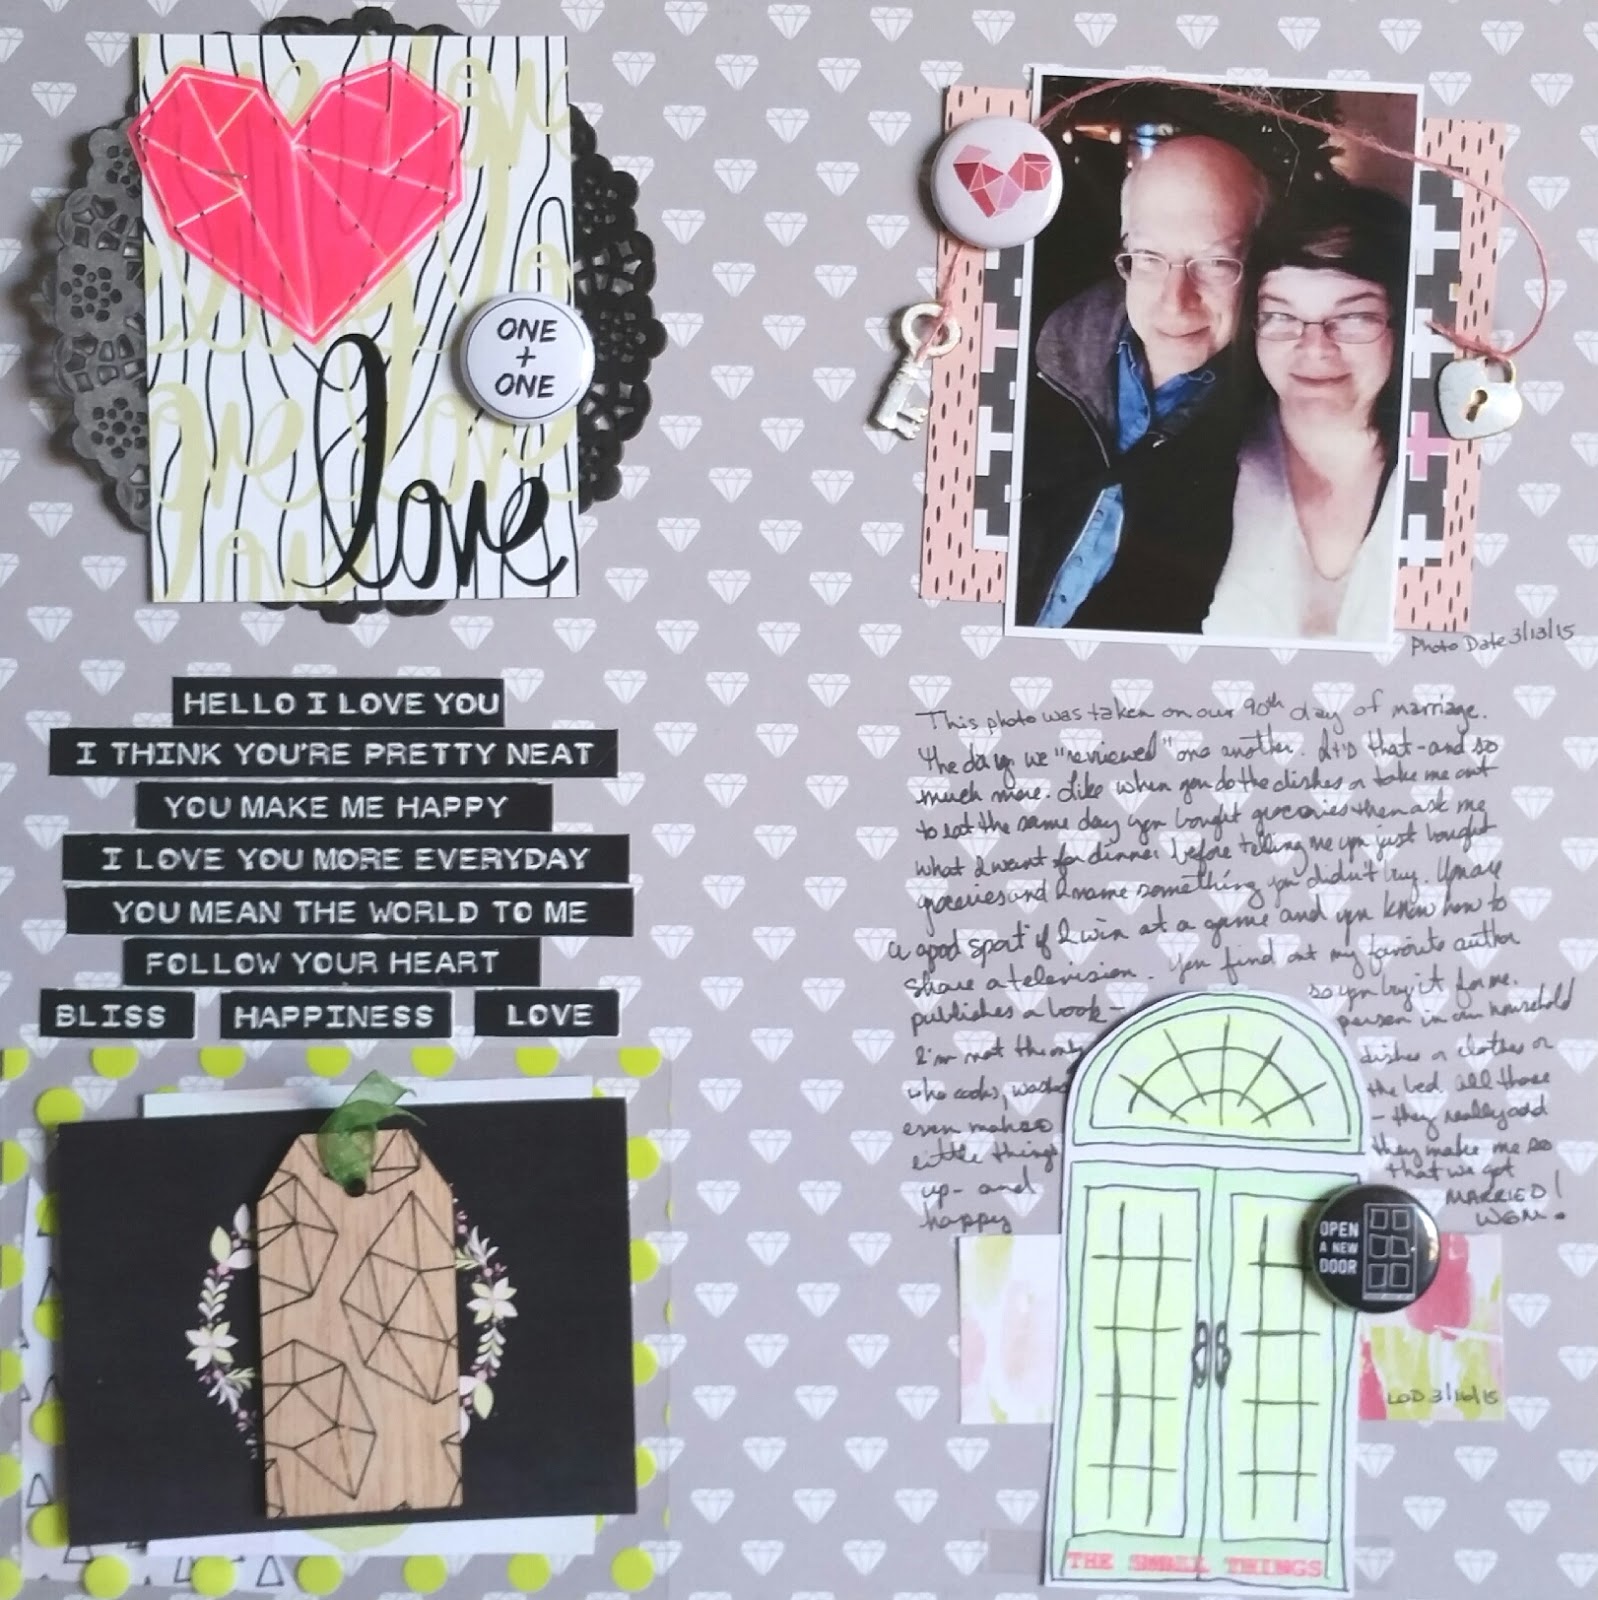 love
ONE
+
ONE
Photo Date 3/13/15
HELLO I LOVE YOU
I THINK YOU'RE PRETTY NEAT
YOU MAKE ME HAPPY
I LOVE YOU MORE EVERYDAY
YOU MEAN THE WORLD TO ME
FOLLOW YOUR HEART
BLISS HAPPINESS LOVE
This photo was taken on our 90th day of marriage.
The day we "reviewed" one another. It's that - and so
much more. Like when you do the dishes or take me out
to eat the same day you bought groceries then ask me
what I want for dinner before telling me you just bought
groceries and I name something you didn't buy. You are
a good sport if I win at a game and you know how to
share a television. You find out my favorite author
publishes a book - so you buy it for me.
I'm not the only person in our household
who cooks, washes dishes or clothes or
even makes the bed. All those
little things - they really add
up - and they make me so
happy that we got
MARRIED!
WGM.
OPEN
A NEW
DOOR
LOD 3/16/15
THE SMALL THINGS